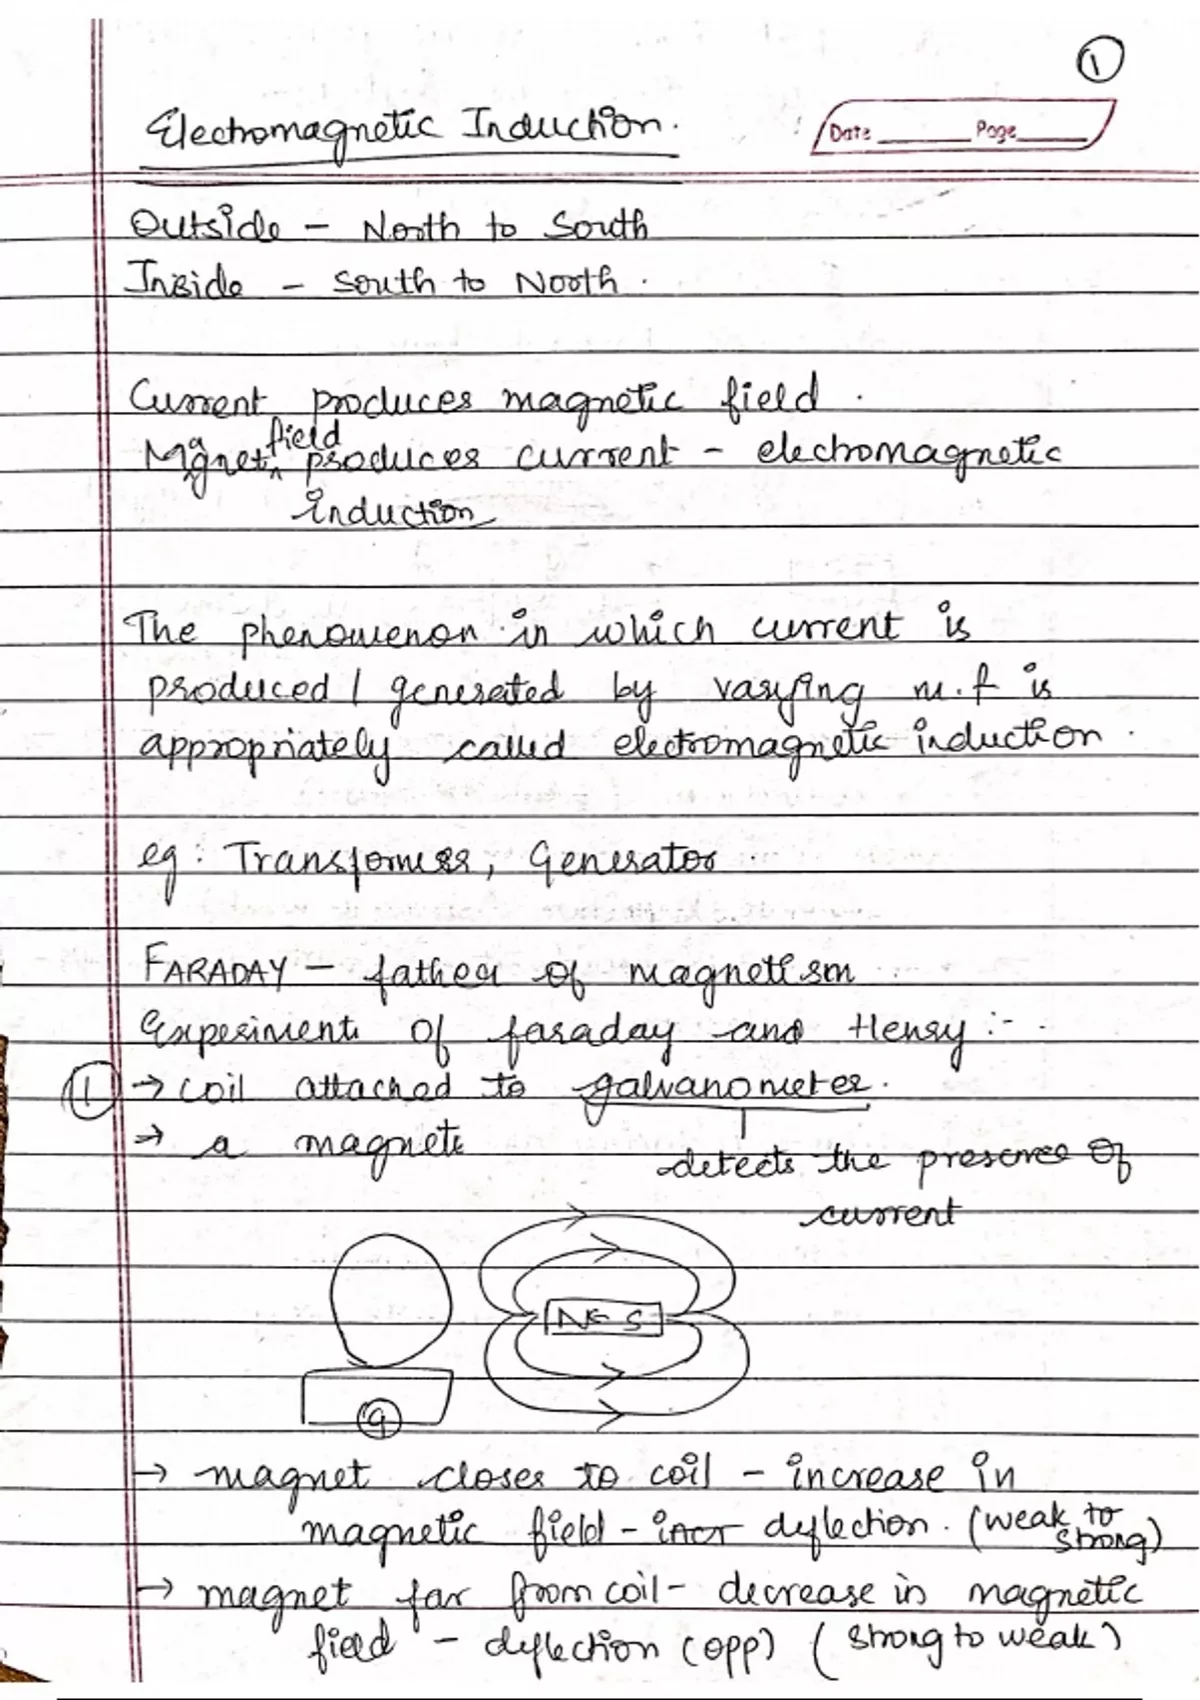 1
Electromagnetic Induction.
Date Page
Outside - North to South
Inside - South to North.
Current produces magnetic field.
field
Magnet produces current - electromagnetic
induction
The phenomenon in which current is
produced / generated by varying m.f is
appropriately called electromagnetic induction.
eg: Transformers, Generator
FARADAY - father of magnetism
Experiment of faraday and Henry :-
1 → coil attached to galvanometer.
→ a magnet
detects the presence of
current
N S
G
→ magnet closer to coil - increase in
magnetic field - incr deflection. (weak to
strong)
→ magnet far from coil - decrease in magnetic
field - deflection (opp) (strong to weak)